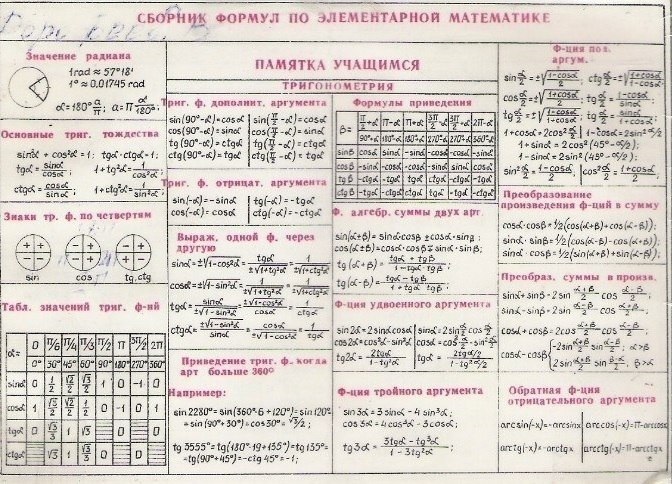 СБОРНИК ФОРМУЛ ПО ЭЛЕМЕНТАРНОЙ МАТЕМАТИКЕ
ПАМЯТКА УЧАЩИМСЯ
Значение радиана
1 rad ≈ 57°18'
1° ≈ 0.01745 rad
α=180° a/π; a=π α/180°
Основные триг. тождества
sin²α + cos²α = 1; tgα·ctgα=1;
tgα = sinα/cosα; 1+tg²α = 1/cos²α;
ctgα = cosα/sinα; 1+ctg²α = 1/sin²α;
Знаки тр. ф. по четвертям
sin cos tg,ctg
Табл. значений триг. ф-ний
α= 0 π/6 π/4 π/3 π/2 π 3π/2 2π
0° 30° 45° 60° 90° 180° 270° 360°
sinα 0 1/2 √2/2 √3/2 1 0 -1 0
cosα 1 √3/2 √2/2 1/2 0 -1 0 1
tgα 0 √3/3 1 √3 0 0
ctgα √3 1 √3/3 0 0
ТРИГОНОМЕТРИЯ
Триг. ф. дополнит. аргумента
sin(90°-α)=cosα sin(π/2-α)=cosα
cos(90°-α)=sinα cos(π/2-α)=sinα
tg(90°-α)=ctgα tg(π/2-α)=ctgα
ctg(90°-α)=tgα ctg(π/2-α)=tgα
Триг. ф. отрицат. аргумента
sin(-α)=-sinα tg(-α)=-tgα
cos(-α)=cosα ctg(-α)=-ctgα
Выраж. одной ф. через
другую
sinα=±√1-cos²α = tgα/±√1+tg²α = 1/±√1+ctg²α
cosα=±√1-sin²α = 1/±√1+tg²α = ctgα/±√1+ctg²α
tgα = sinα/±√1-sin²α = ±√1-cos²α/cosα = 1/ctgα
ctgα = ±√1-sin²α/sinα = cosα/±√1-cos²α = 1/tgα
Приведение триг. ф. когда
арг больше 360°
Например:
sin 2280° = sin(360°·6+120°)=sin120°
=sin(90°+30°)=cos30°=√3/2;
tg 3555°=tg(180°·19+135°)=tg135°=
=tg(90°+45°)=-ctg 45°=-1;
Формулы приведения
β= π/2+α π-α π+α 3π/2-α 3π/2+α 2π-α
90°+α 180°-α 180°+α 270°-α 270°+α 360°-α
sinβ cosα sinα -sinα -cosα -cosα -sinα
cosβ -sinα -cosα -cosα -sinα sinα cosα
tgβ -ctgα -tgα tgα ctgα -ctgα -tgα
ctgβ -tgα -ctgα ctgα tgα -tgα -ctgα
Ф. алгебр. суммы двух арг.
sin(α±β)=sinα·cosβ±cosα·sinβ;
cos(α±β)=cosα·cosβ∓sinα·sinβ;
tg(α+β)= tgα+tgβ/1-tgα·tgβ;
tg(α-β)= tgα-tgβ/1+tgα·tgβ;
Ф-ция удвоенного аргумента
sin2α=2sinα·cosα; sinα=2sin α/2 cos α/2
cos2α=cos²α-sin²α; cosα=cos² α/2-sin² α/2
tg2α= 2tgα/1-tg²α; tgα= 2tg α/2/1-tg² α/2
Ф-ция тройного аргумента
sin 3α=3 sinα-4 sin³α;
cos 3α=4 cos³α-3 cosα;
tg 3α= 3tgα-tg³α/1-3tg²α;
Ф-ция пол.
аргум.
sin α/2=±√1-cosα/2; ctg α/2=±√1+cosα/1-cosα;
cos α/2=±√1+cosα/2; tg α/2= 1-cosα/sinα;
tg α/2=±√1-cosα/1+cosα; tg α/2= sinα/1+cosα;
1+cosα=2cos² α/2 1-cosα=2sin² α/2;
1+sinα=2cos²(45°-α/2);
1-sinα=2sin²(45°-α/2);
sin² α/2= 1-cosα/2 cos² α/2= 1+cosα/2
Преобразование
произведения ф-ций в сумму
cosα·cosβ=1/2(cos(α+β)+cos(α-β));
sinα·sinβ=1/2(cos(α-β)-cos(α+β));
sinα·cosβ=1/2(sin(α+β)+sin(α-β));
Преобраз. суммы в произв.
sinα+sinβ=2sin α+β/2 cos α-β/2;
sinα-sinβ=2sin α-β/2 cos α+β/2;
cosα+cosβ=2cos α+β/2 cos α-β/2;
cosα-cosβ{-2sin α+β/2 sin α-β/2;
2sin α+β/2 sin β-α/2. β>α
Обратная ф-ция
отрицательного аргумента
arcsin(-x)=-arcsinx arccos(-x)=π-arccosx
arctg(-x)=-arctgx arcctg(-x)=π-arcctgx